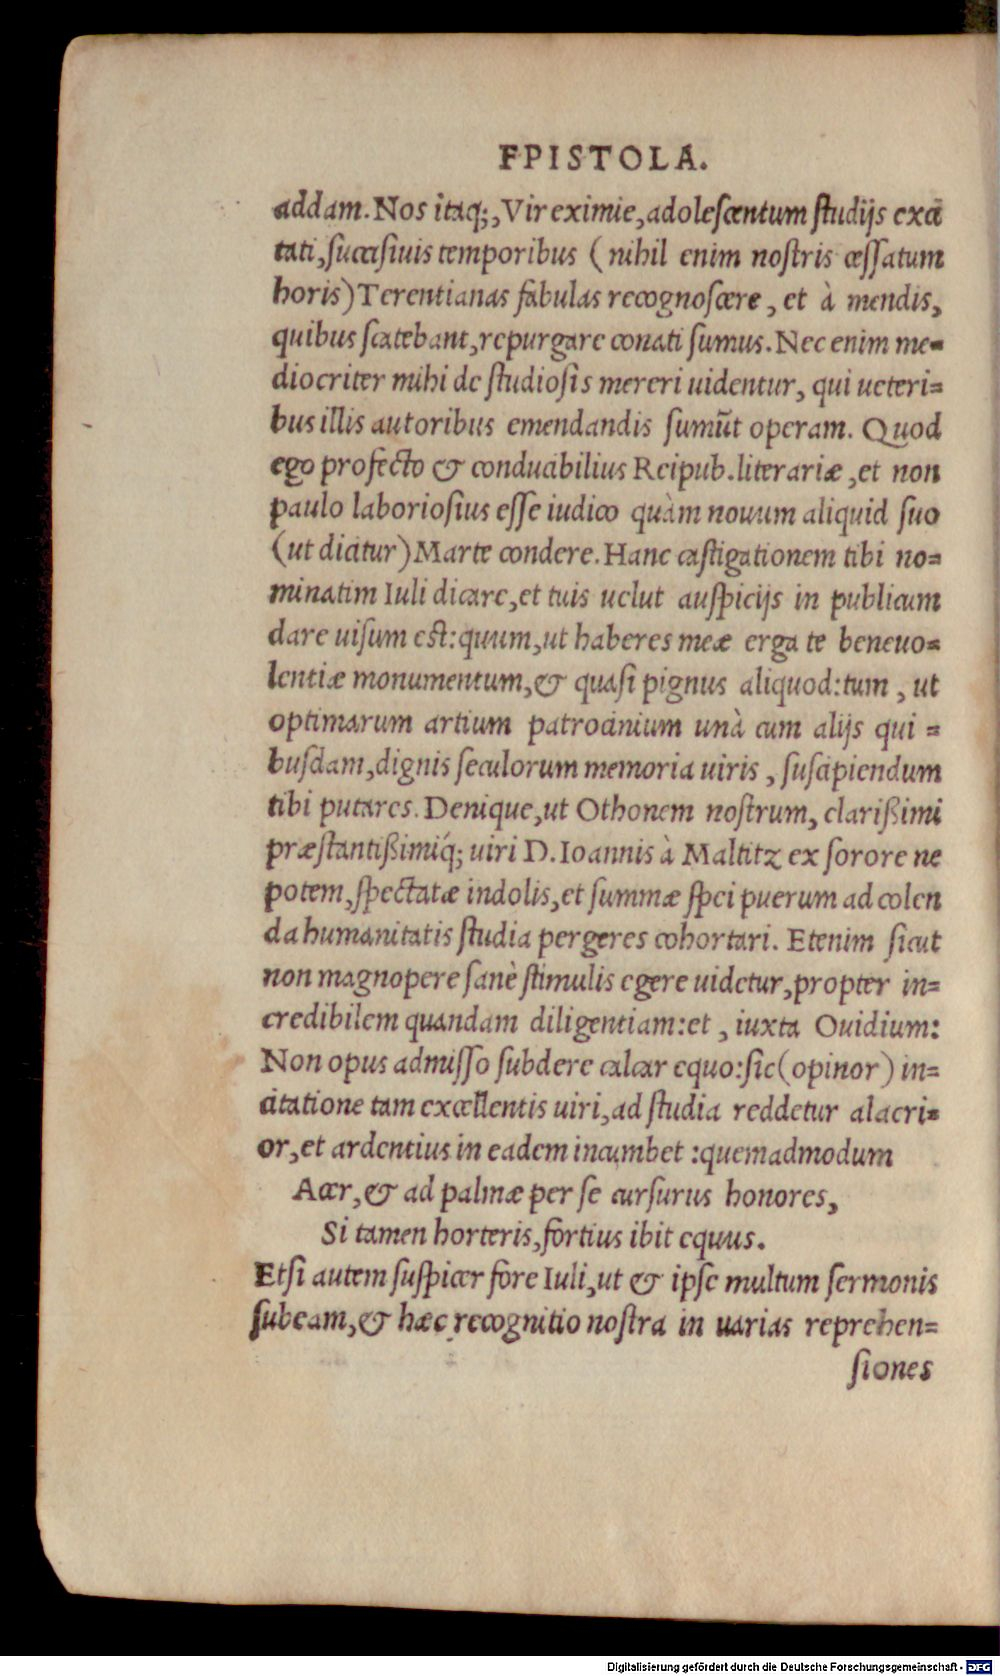 EPISTOLA.
addam. Nos itaq;, Vir eximie, adolescentum studijs exci
tati, succisiuis temporibus ( nihil enim nostris cessatum
horis) Terentianas fabulas recognoscere, et à mendis,
quibus scatebant, repurgare conati sumus. Nec enim me=
diocriter mihi de studiosis mereri uidentur, qui ueteri=
bus illis autoribus emendandis sumũt operam. Quod
ego profecto & conducibilius Reipub. literariæ, et non
paulo laboriosius esse iudico quàm nouum aliquid suo
(ut dicitur) Marte condere. Hanc castigationem tibi no=
minatim Iuli dicare, et tuis uelut auspicijs in publicum
dare uisum est: quum, ut haberes meæ erga te beneuo=
lentiæ monumentum, & quasi pignus aliquod: tum, ut
optimarum artium patrocinium unà cum alijs qui =
busdam, dignis seculorum memoria uiris, suscipiendum
tibi putares. Denique, ut Othonem nostrum, clarißimi
præstantißimiq́; uiri D. Ioannis à Maltitz ex sorore ne
potem, spectatæ indolis, et summæ spei puerum ad colen
da humanitatis studia pergeres cohortari. Etenim sicut
non magnopere sanè stimulis egere uidetur, propter in=
credibilem quandam diligentiam: et, iuxta Ouidium:
Non opus admisso subdere calcar equo: sic (opinor) in=
citatione tam excellentis uiri, ad studia reddetur alacri=
or, et ardentius in eadem incumbet : quemadmodum
Acer, & ad palmæ per se cursurus honores,
Si tamen horteris, fortius ibit equus.
Etsi autem suspicer fore Iuli, ut & ipse multum sermonis
subeam, & hæc recognitio nostra in uarias reprehen=
siones
Digitalisierung gefördert durch die Deutsche Forschungsgemeinschaft - DFG